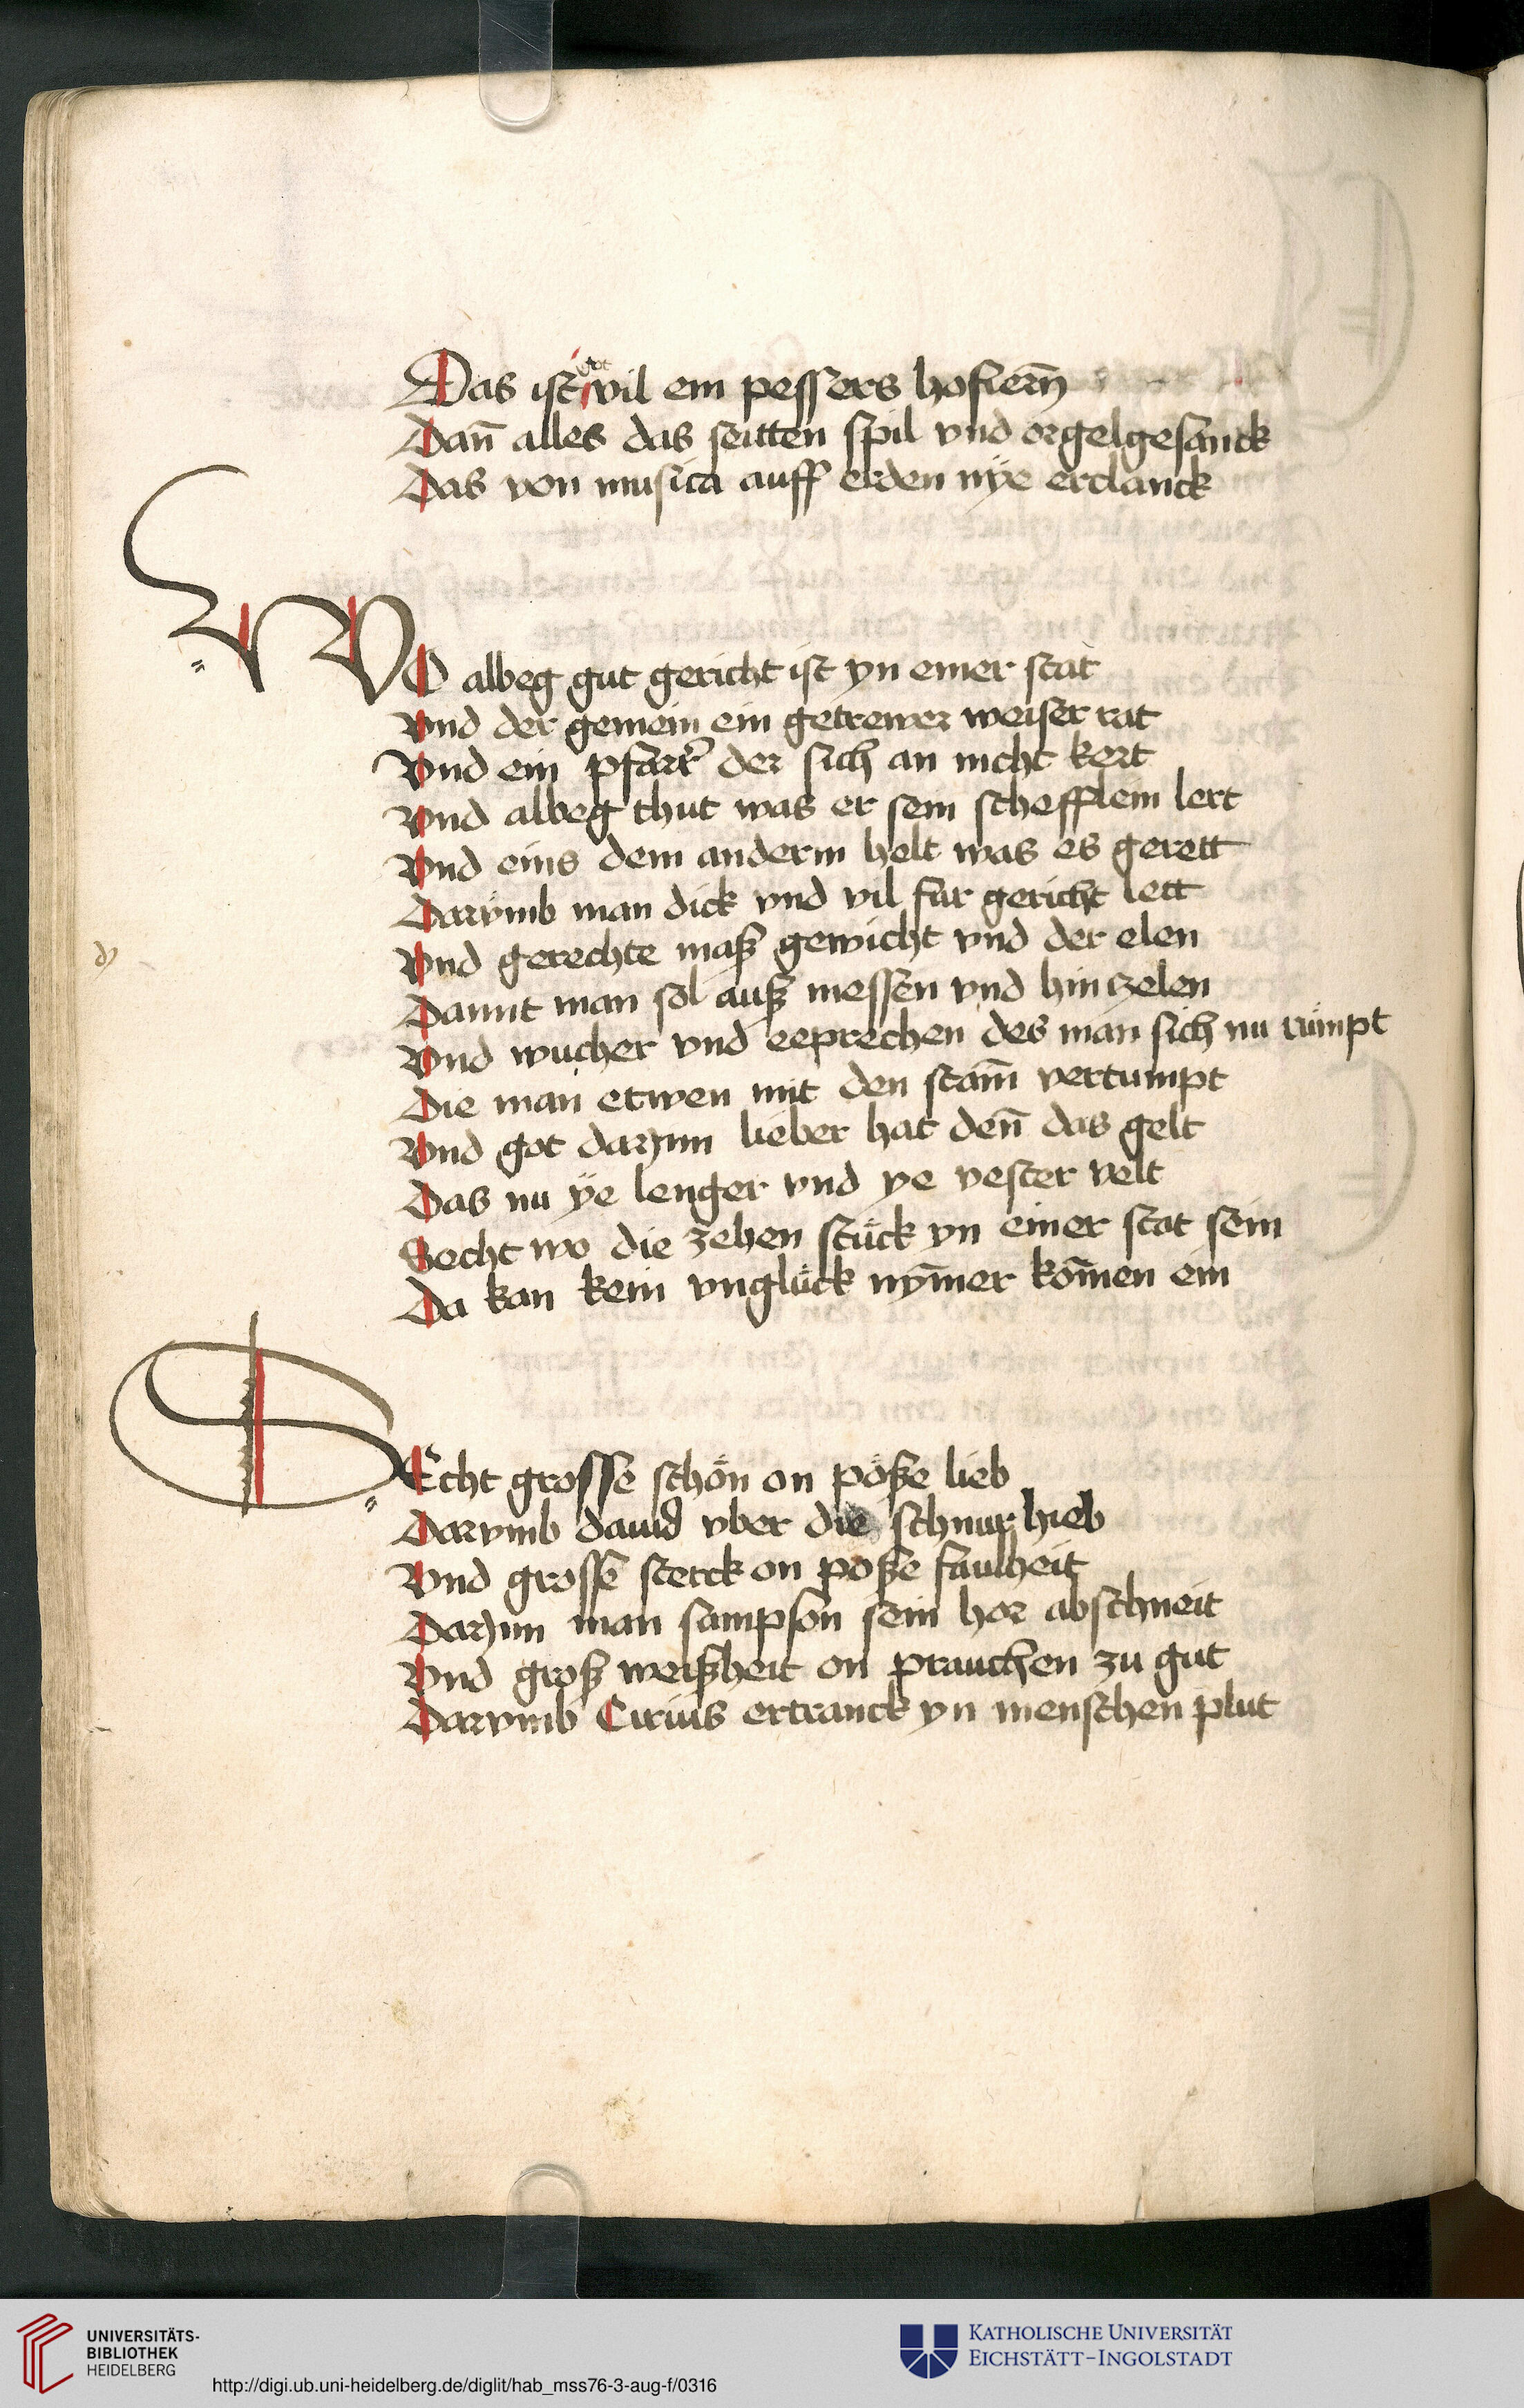 Das ist vor got vil ein pessers hofiern̄
Dan̄ alles das seitten spil vnd orgelgesanck
Das von musica auff erden nÿe erclanck
WO albeg gut gericht ist yn einer stat
Vnd der gemein ein getrewer weiser rat
Vnd ein pfarr̓ der sich an nicht kert
Vnd albeg thut was er sein schefflein lert
Vnd eins dem anderm helt was es gerett
Darvmb man dick vnd vil fur gericht lett
Vnd gerechte maß gewicht vnd der elen
Damit man sol auß messen vnd hin zelen
Vnd wucher vnd eeprechen des man sich nu rümpt
Die man etwen mit den stam̄ vertumpt
Vnd got darynn lieber hat den̄ das gelt
Das nu ÿe lenger vnd ye vester velt
Secht wo die zehen stück yn einer stat sein
Da kan kein vnglück nym̄er kom̄en ein
SEcht grosse schön on pöße lieb
Darvmb dauid vber die schnur hieb
Vnd grosse sterck on poße faulheit
Darynn man sampson sein hor abschneit
Vnd groß weißheit on prauchen zu gut
Darvmb Cirius ertranck yn menschen plut
UNIVERSITÄTS-
BIBLIOTHEK
HEIDELBERG
http://digi.ub.uni-heidelberg.de/diglit/hab_mss76-3-aug-f/0316
KATHOLISCHE UNIVERSITÄT
EICHSTÄTT-INGOLSTADT